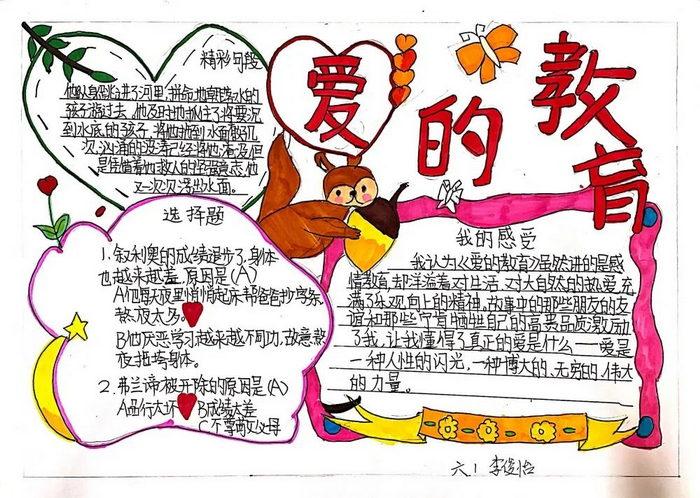 爱的教育
精彩句段
他纵身跳进了河里,拼命地朝落水的
孩子游过去,他及时地抓住了将要沉
到水底的孩子,将他拖到水面
次,汹涌的波涛已经将他淹没,但
是凭借着他救人的坚强意志,他
又一次次浮出水面。
选择题
1.叙利奥的成绩退步了,身体
也越来越差,原因是(A)
A他每天夜里悄悄起床帮爸爸抄字条,
熬夜太多。
B他厌恶学习,越来越不用功,故意熬
夜,拖垮身体。
2.弗兰蒂被开除的原因是(A)
A品行太坏 B成绩太差
C不尊敬父母
我的感受
我认为《爱的教育》虽然讲的是感
情教育,却洋溢着对生活、对大自然的热爱,充
满了乐观向上的精神。故事中的那些朋友的友
谊和那些宁肯牺牲自己的高美品质激励
了我,让我懂得了真正的爱是什么——爱是
一种人性的闪光,一种博大的、无穷的、伟大
的力量。
六1 李俊怡